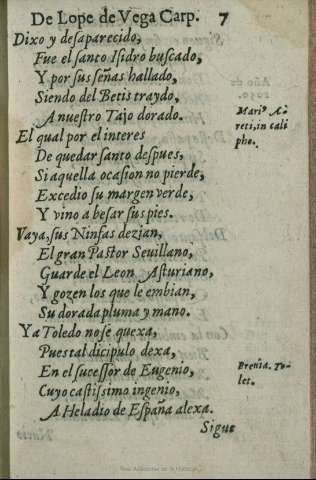 De Lope de Vega Carp. 7
Dixo y desaparecido,
Fue el santo Isidro buscado,
Y por sus señas hallado,
Siendo del Betis traydo,
A nuestro Tajo dorado.
El qual por el interes
De quedar santo despues,
Si aquella ocasion no pierde,
Excedio su margen verde,
Y vino a besar sus pies.
Vaya, sus Ninfas dezian,
El gran Pastor Seuillano,
Guarde el Leon Asturiano,
Y gozen los que le embian,
Su dorada pluma y mano.
Ya Toledo no se quexa,
Pues tal dicipulo dexa,
En el sucessor de Eugenio,
Cuyo castissimo ingenio,
A Heladio de España alexa.
Sigue
Mariº A-
reti, in cali
phe.
To-
let.